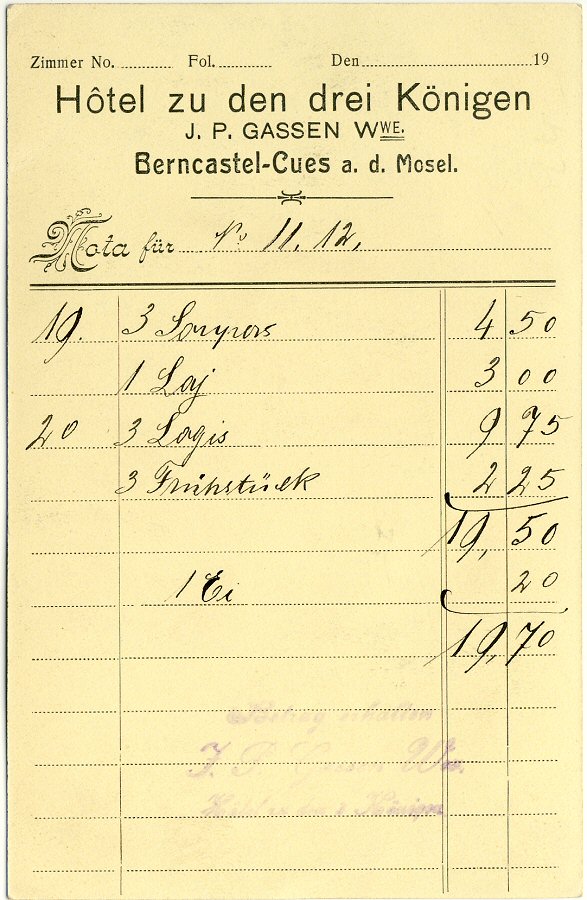 Zimmer No. ............ Fol. ............ Den ............ 19
Hôtel zu den drei Königen
J. P. GASSEN WWE.
Berncastel-Cues a. d. Mosel.
Nota für No 11. 12.
19. 3 Soupers 4 50
1 3 00
20 3 Logis 9 75
3 Frühstück 2 25
19, 50
1 Ei 20
19,70
Betrag erhalten
J. P. Gassen Wwe.
Hotel zu den 3 Königen